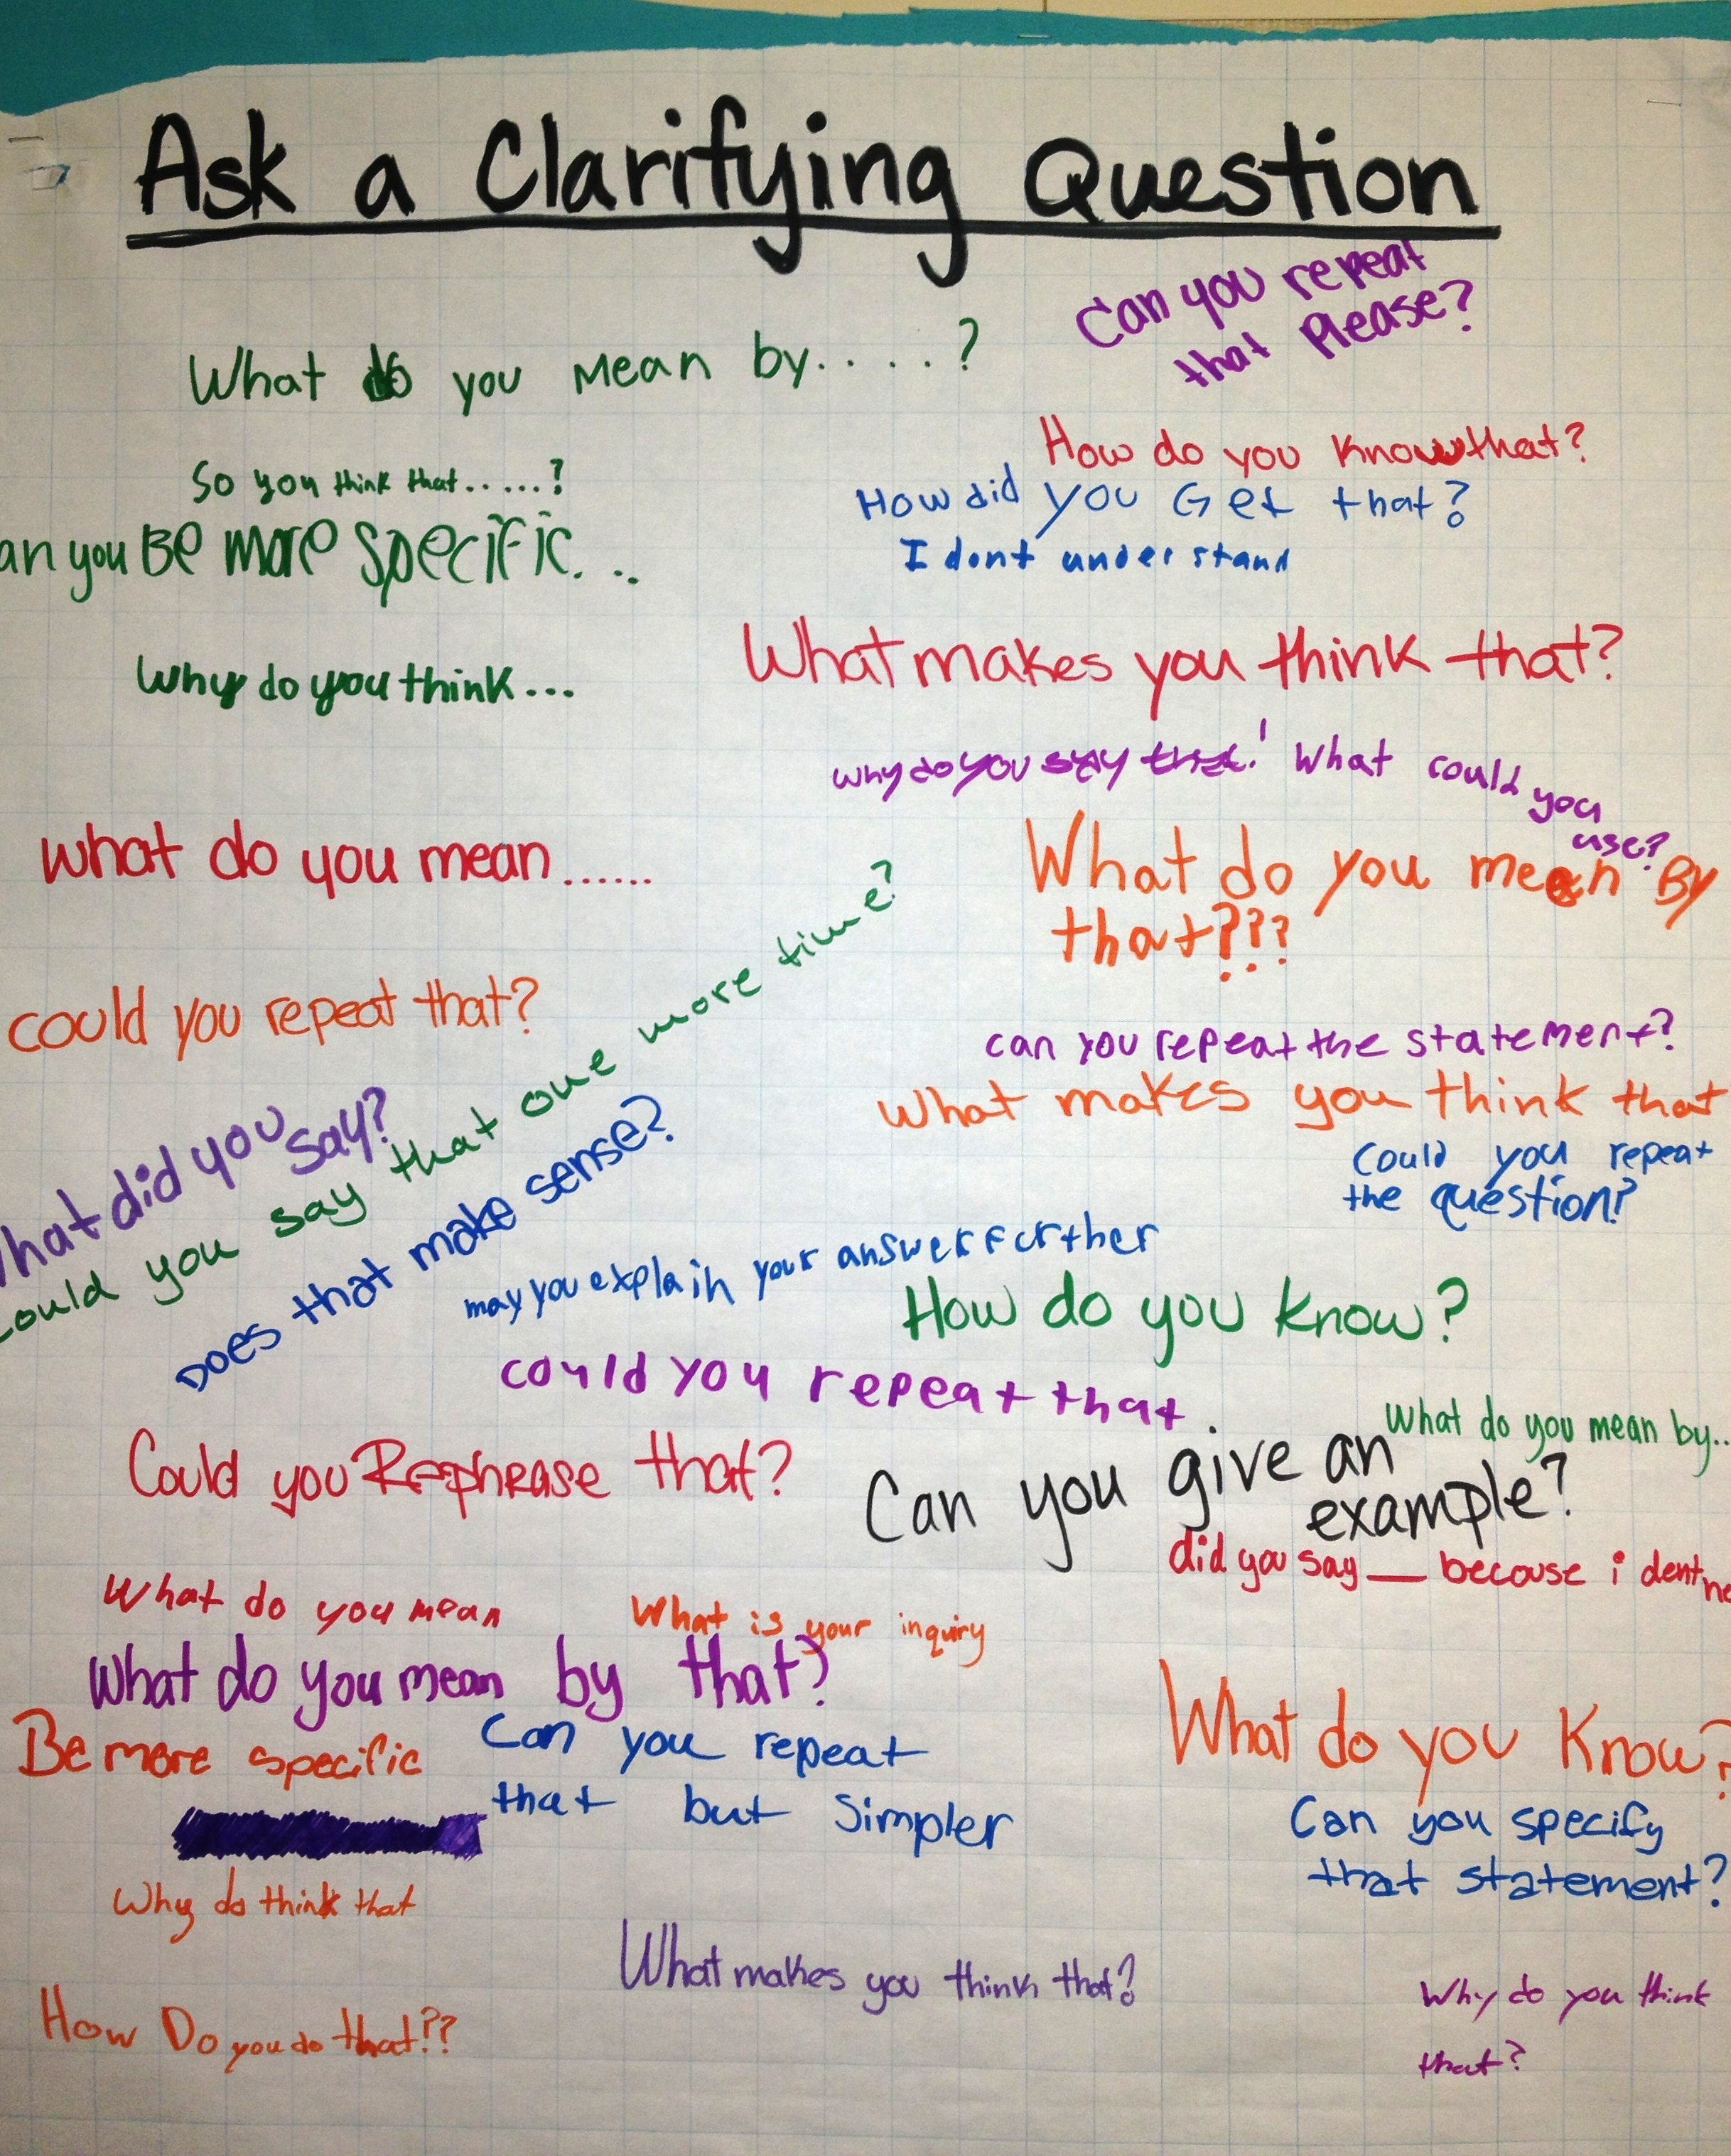 Ask a Clarifying Question
Can you repeat
that Please?
What do you mean by.....?
How do you know that?
So you think that......?
How did you Get that?
I dont understand
an you Be more specific...
What makes you think that?
Why do you think...
why do you say that! What could you
use?
what do you mean......
What do you mean By
that???
could you repeat that?
can you repeat the statement?
What makes you think that
Could you repeat
the question?
hat did you say?
could you say that one more time?
Does that make sense?
may you explain your answer further
How do you know?
could you repeat that.
What do you mean by..
Could you Rephrase that?
Can you give an
example?
did you say __ because i
What do you mean
What is your inquiry
What do you mean by that?
Be more specific
Can you repeat
that but Simpler
What do you know?
Can you specify
that statement?
Why do think that
What makes you think that?
Why do you think
that?
How Do you do that??